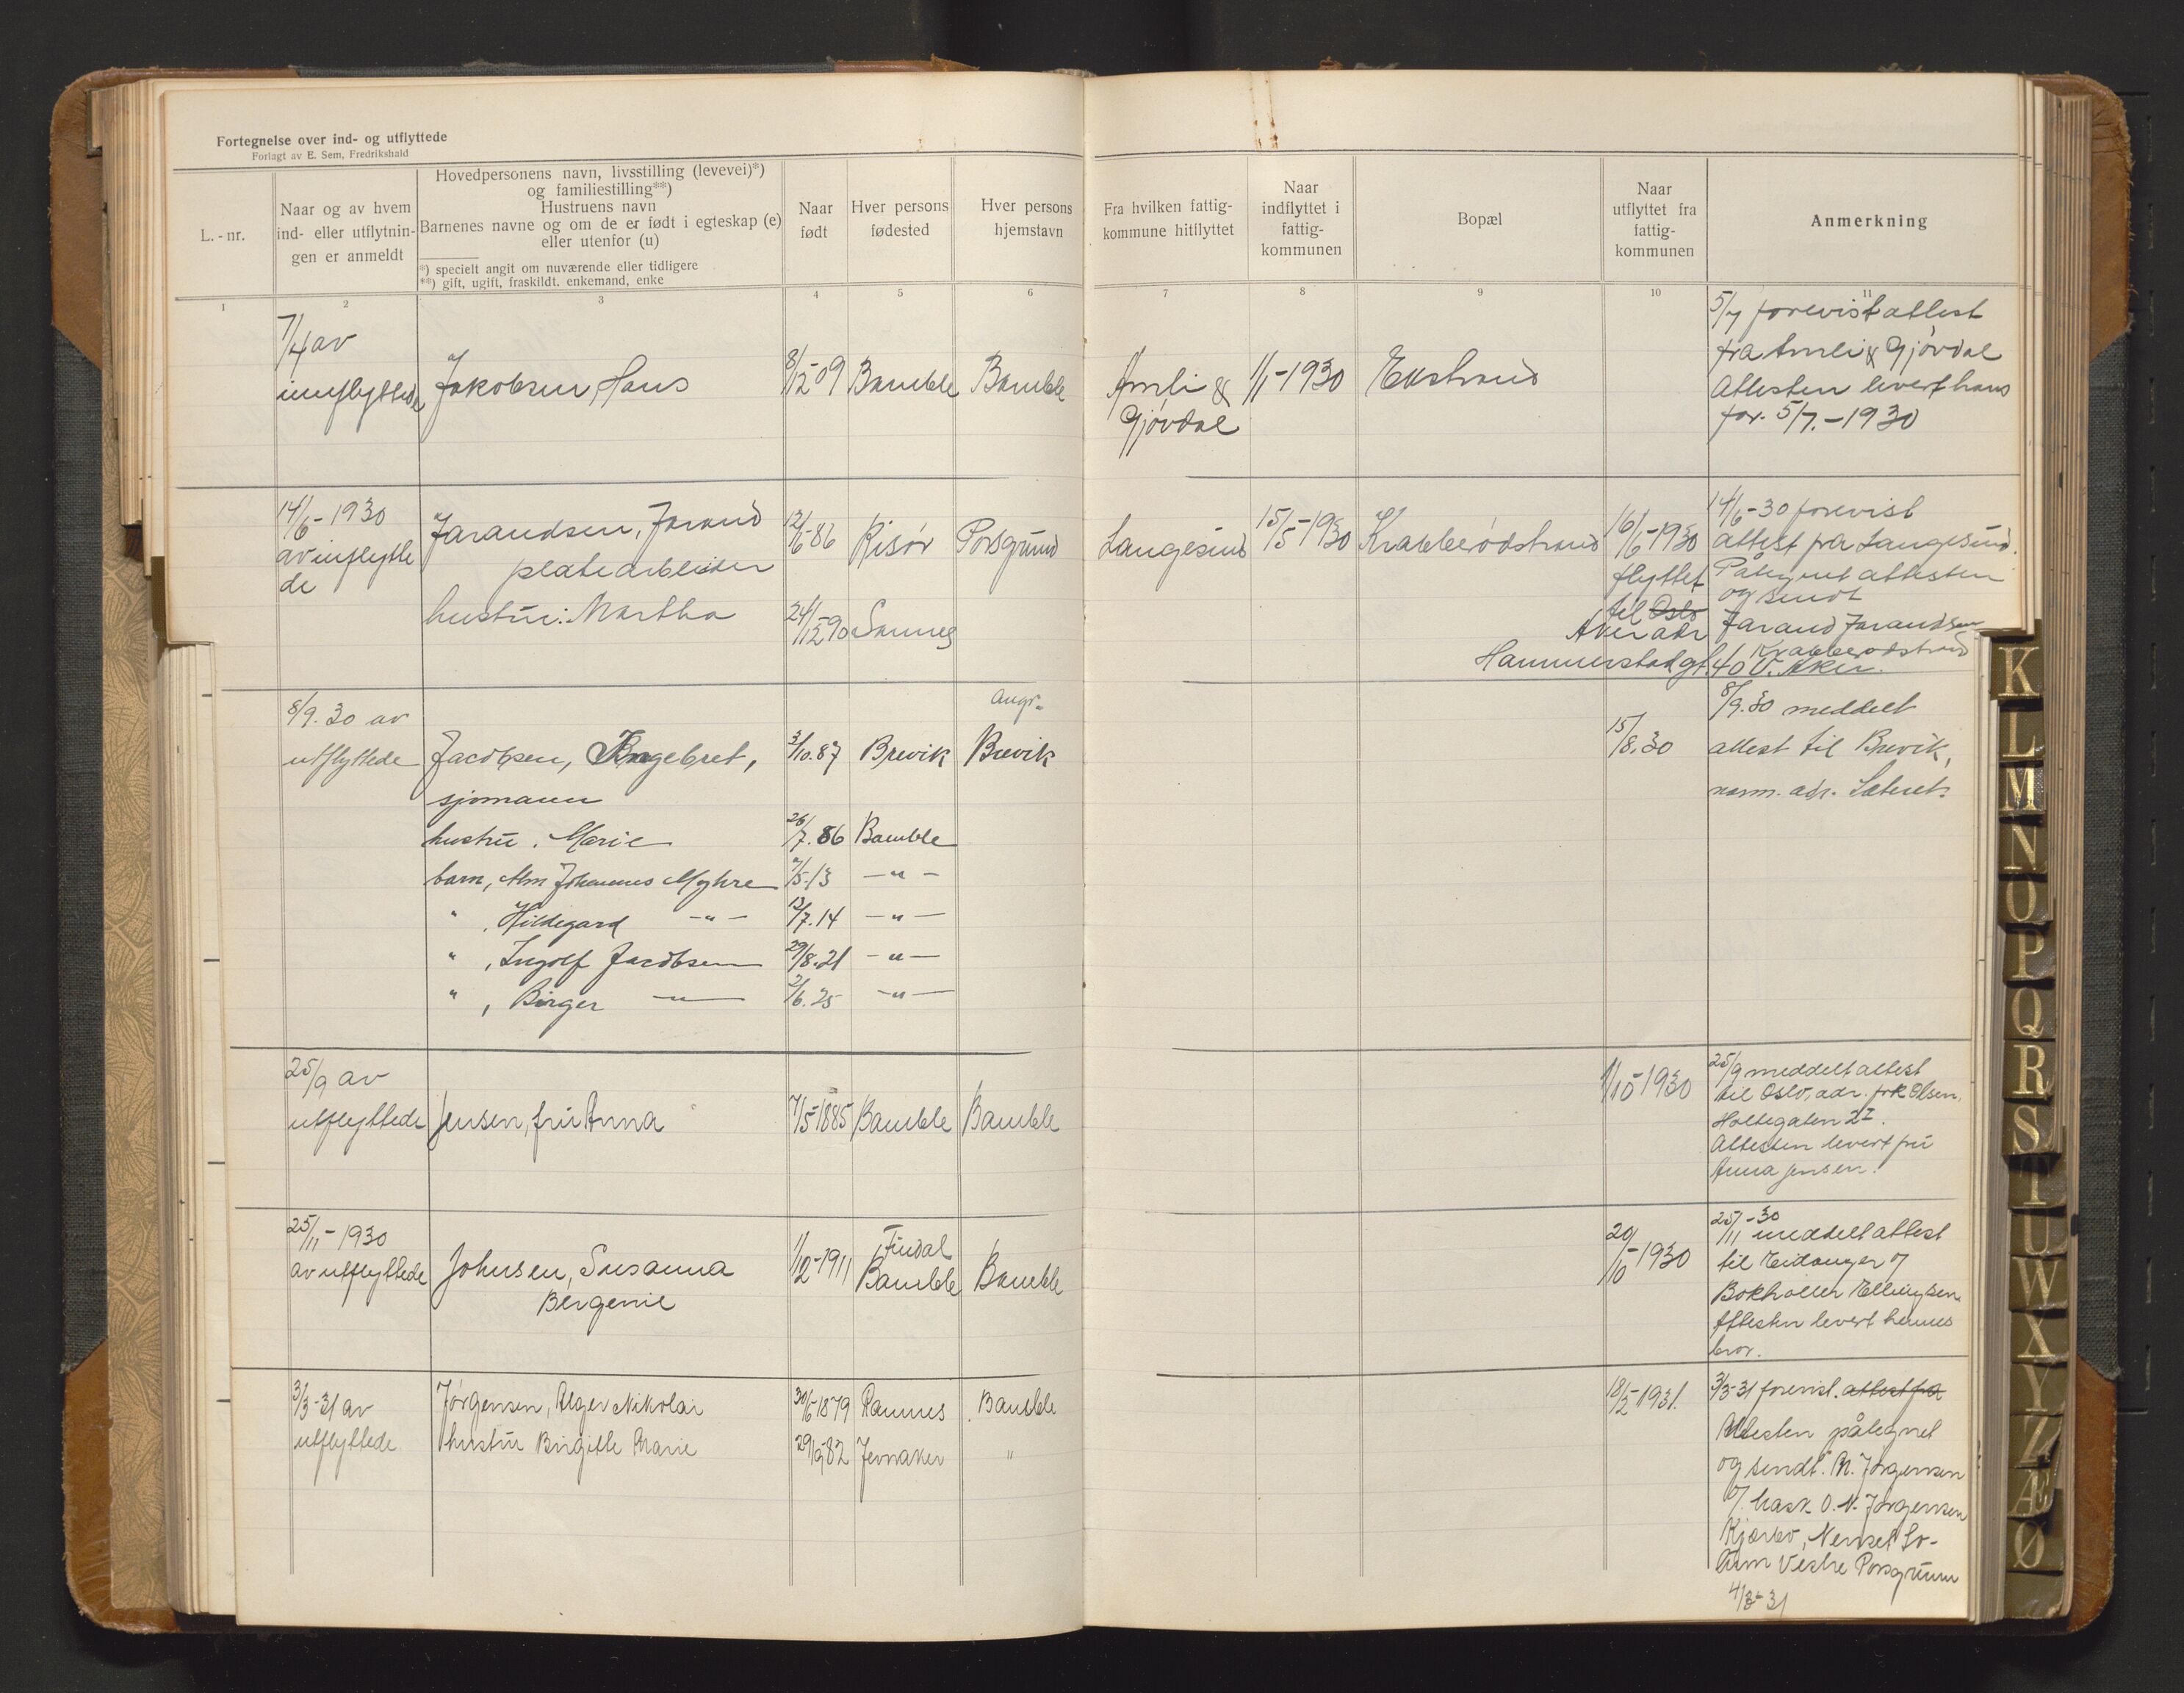 Fortegnelse over ind- og utflyttede
Forlagt av E. Sem, Fredrikshald
L. - nr.
Naar og av hvem
ind- eller utflytnin-
gen er anmeldt
Hovedpersonens navn, livsstilling (levevei)*)
og familiestilling**)
Hustruens navn
Barnenes navne og om de er født i egteskap (e)
eller utenfor (u)
*) specielt angit om nuværende eller tidligere
**) gift, ugift, fraskildt. enkemand, enke
Naar
født
Hver persons
fødested
Hver persons
hjemstavn
Fra hvilken fattig-
kommune hitflyttet
Naar
indflyttet i
fattig-
kommunen
Bopæl
Naar
utflyttet fra
fattig-
kommunen
Anmerkning
1 2 3 4 5 6 7 8 9 10 11
7/4 av
innflyttede
Jakobsen, Hans
8/12-09
Bamble
Bamble
Amli &
Gjøvdal
1/1-1930
Ekstrand
5/7 forevist attest
fra Amli & Gjøvdal
Attesten levert hans
far. 5/7.-1930
14/6-1930
av innflytte
de
Jarandsen, Jarand
platearbeider
hustru: Martha
12/6-86
24/12-90
Risør
Sannes
Porsgrund
Langesund
15/5-1930
Krabberødstrand
16/6-1930
flyttet
til Oslo
Aker adr
Hammerstadgt. 40 V. Aker.
14/6-30 forevist
attest fra Langesund.
Påtegnet attesten
og sendt
Jarand Jarandsen
Krabberødstrand
8/9.30 av
utflyttede
Jacobsen, Ingebret,
sjømann
hustru, Marie
barn, Alm Johannes Myhre
" , Hildegard -"-
" , Ingolf Jacobsen
" , Birger -"-
3/10.87
26/7.86
7/5-13
12/7.14
29/8.21
2/6.25
Brevik
Bamble
-"-
-"-
-"-
-"-
Angr.
Brevik
15/8.30
8/9.30 meddelt
attest til Brevik,
norm. adr. Sætret.
25/9 av
utflyttede
Jensen, fru Anna
7/5-1885
Bamble
Bamble
1/10-1930
25/9 meddelt attest
til Oslo, adr. frk Olsen,
Holtegaten 2 I.
Attesten levert fru
Anna Jensen.
25/11-1930
av utflyttede
Johnsen, Susanna
Bergenie
1/12-1911
Findal
Bamble
Bamble
20/10-1930
25/11-30 meddelt attest
til Eidanger %
Bokholder Ellingsen.
Attesten levert hennes
bror.
3/3-31 av
utflyttede
Jørgensen, Alger Nikolai
hustru Birgitte Marie
30/6-1879
29/9-82
Ramnes
Jevnaker
Bamble
"
18/2-1931.
3/3-31 forevist. attest fra
Attesten påtegnet
og sendt. N. Jørgensen
%. bask. O. N. Jørgensen
Kjørbo, Nenset So-
lum Vestre Porsgrunn
4/3-31
K
L
M
N
O
P
Q
R
S
T
U
W
X
Y
Z
Æ
Ø